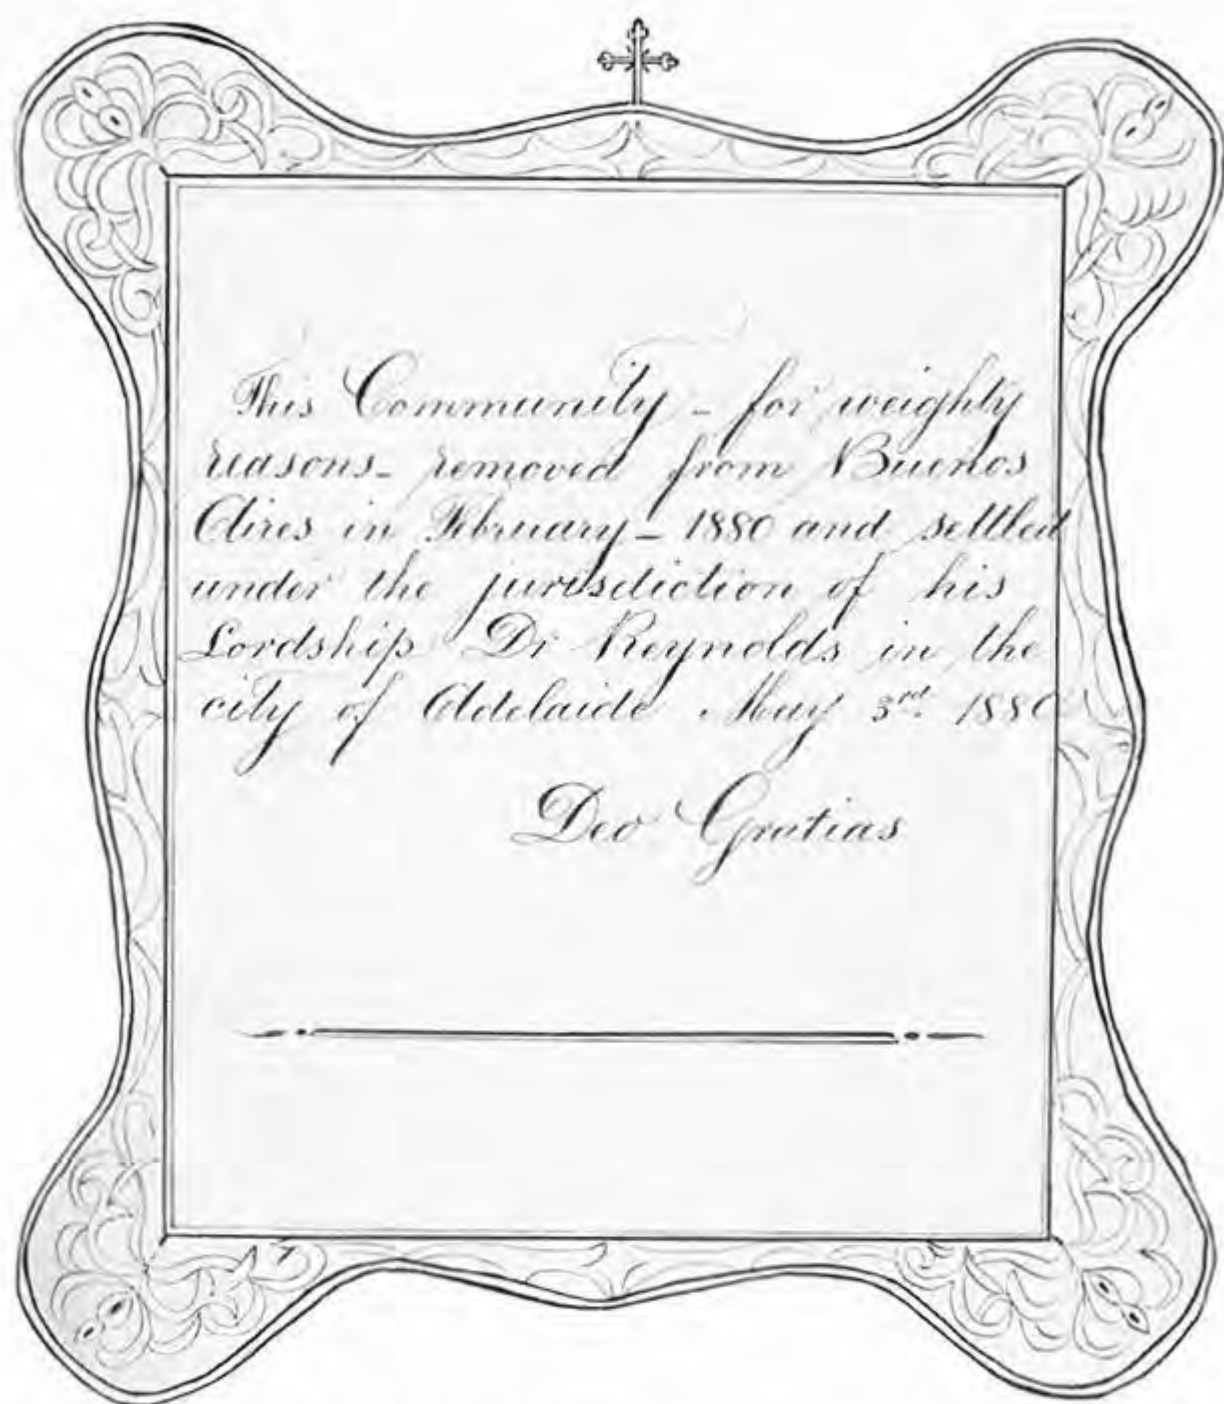 This Community - for weighty
reasons - removed from Buenos
Aires in February - 1880 and settled
under the jurisdiction of his
Lordship Dr Reynolds in the
city of Adelaide May 3rd. 1880
Deo Gratias